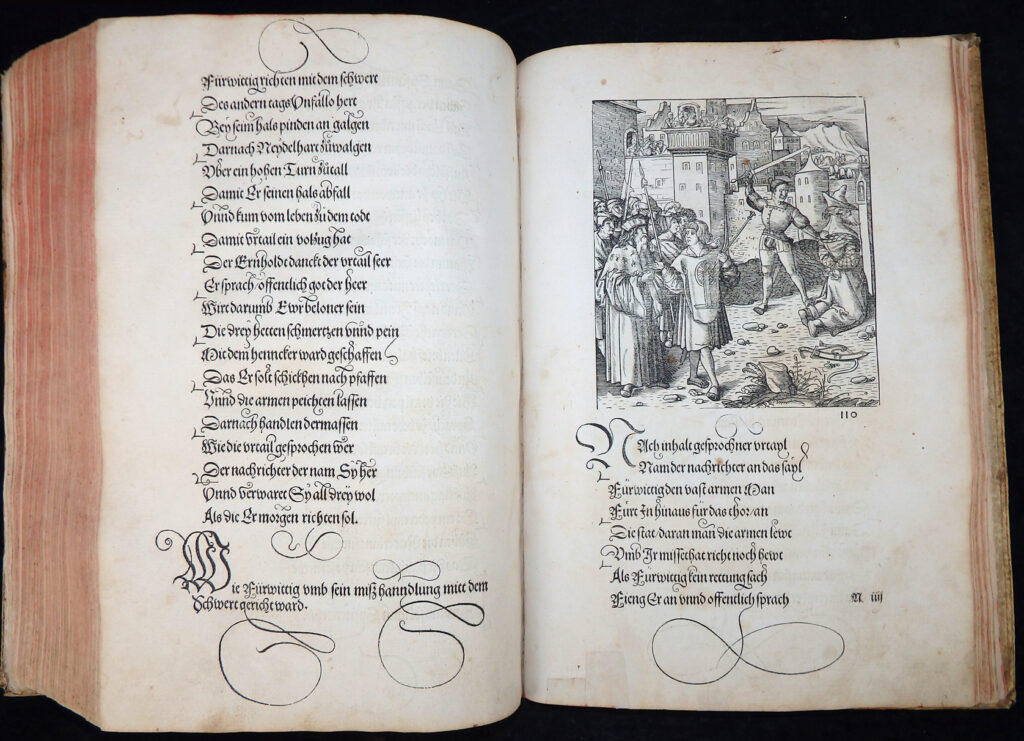 Fürwittig richten mit dem schwert
Des andern tags Vnfallo hert
Bey seim hals pinden an galgen
Darnach Neydelhart zuwalgen
Vber ein hohen Turn zutall
Damit Er seinen hals abfall
Vnnd kum vom leben zu dem todt
Damit vrtail ein volzug hat
Der Ernholdt danckt der vrtail seer
Er sprach öffentlich got der heer
Wirt darumb Ewr beloner sein
Die drey hetten schmertzen vnnd pein
Mit dem henncker ward geschaffen
Das Er solt schickhen nach pfaffen
Vnnd die armen peichten lassen
Darnach handlen dermassen
Wie die vrtail gesprochen wer
Der nachrichter der nam Sy her
Vnnd verwaret Sy all drey wol
Als die Er morgen richten sol.
Wie Fürwittig vmb sein misshanndlung mitt dem
Schwert gericht ward.
110
NAch inhalt gesprochner vrtayl
Nam der nachrichter an das sayl
Fürwittig den vast armen Man
Fürt In hinaus für das thor an
Die stat daran man die armen lewt
Vmb Ir missethat richt noch hewt
Als Fürwittig kein rettung sach
Fieng Er an vnnd offentlich sprach
N iiij